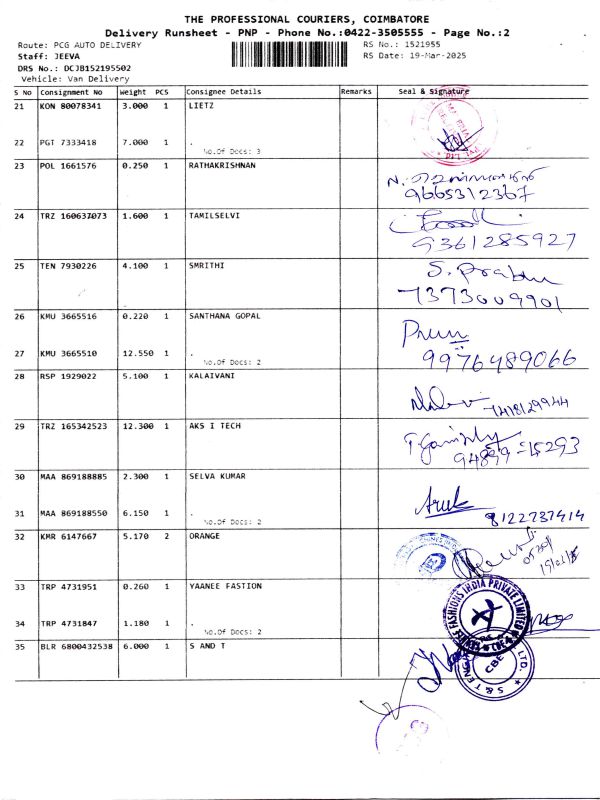 THE PROFESSIONAL COURIERS, COIMBATORE
Delivery Runsheet - PNP - Phone No.:0422-3505555 - Page No.:2
Route: PCG AUTO DELIVERY RS No.: 1521955
Staff: JEEVA RS Date: 19-Mar-2025
DRS No.: DCJB152195502
Vehicle: Van Delivery
S No Consignment No Weight PCS Consignee Details Remarks Seal & Signature
21 KON 80078341 3.000 1 LIETZ
22 PGT 7333418 7.000 1 .
No.Of Docs: 3
23 POL 1661576 0.250 1 RATHAKRISHNAN
9665312367
24 TRZ 160637073 1.600 1 TAMILSELVI
9361285927
25 TEN 7930226 4.100 1 SMRITHI S. Prabhu
7373009901
26 KMU 3665516 0.220 1 SANTHANA GOPAL
27 KMU 3665510 12.550 1 . 9976489066
No.Of Docs: 2
28 RSP 1929022 5.100 1 KALAIVANI
7418129944
29 TRZ 165342523 12.300 1 AKS I TECH
94899-15293
30 MAA 869188885 2.300 1 SELVA KUMAR
31 MAA 869188550 6.150 1 . 8122737414
No.Of Docs: 2
32 KMR 6147667 5.170 2 ORANGE
33 TRP 4731951 0.260 1 YAANEE FASTION
34 TRP 4731847 1.180 1 .
FASHIONS INDIA PRIVATE LIMITED
No.Of Docs: 2
35 BLR 6800432538 6.000 1 S AND T
CBE
S & T ENGI LTD.